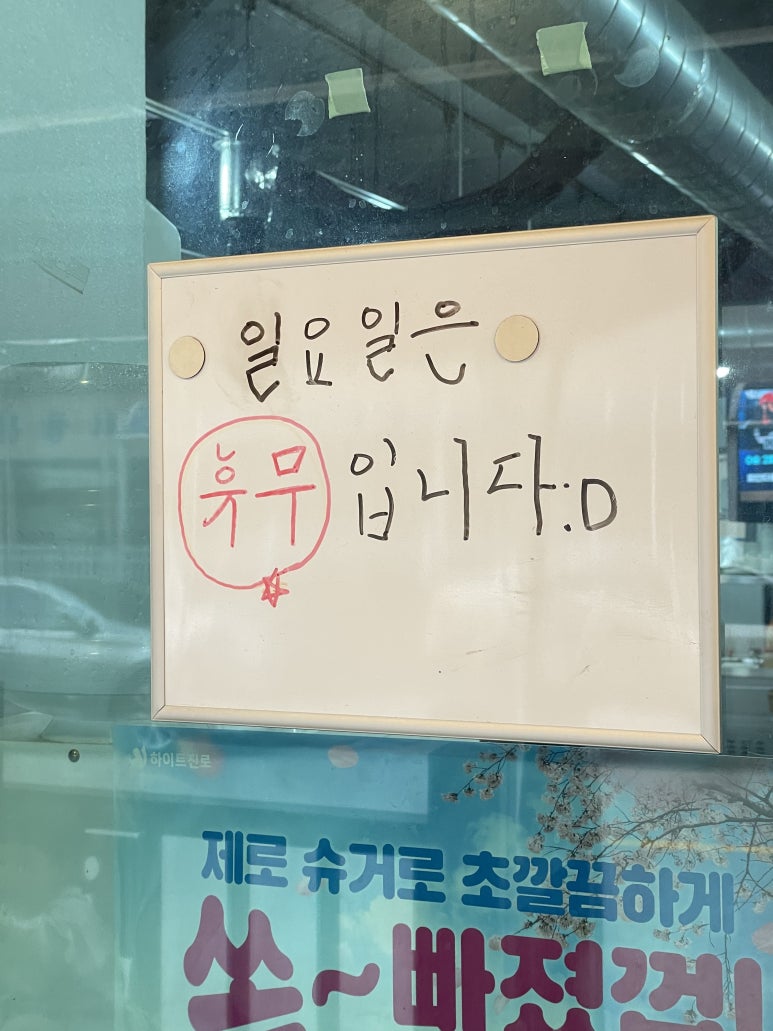 일요일은
휴무입니다:D
하이트진로
제로 슈거로 초깔끔하게
쏙~빠졌걸!